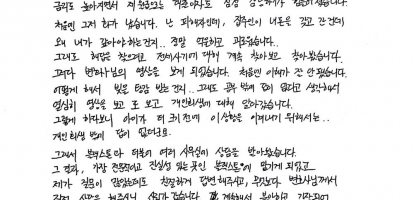 처음엔 그저 화가 났습니다. 난 피해자인데, 집주인이 내돈을 갖고 간건데
왜 내가 갚아야 하는건지.. 정말 억울하고 괴로웠습니다..
그래도 해답을 찾으려고 전세사기에 대해 계속 찾아보고 찾아봤습니다.
그러다 변호사님의 영상을 보게 되었습니다. 처음엔 이해가 잘 안 됐습니다.
어떻게 해서 빚을 탕감 받는건지.. 그래도 공부 밖에 답이 없다고 생각해서
열심히 영상을 보고 또 보고, 개인회생에 대해 알아갔습니다.
그렇게 하다보니 아이가 더 크기전에 이 상황을 이겨내기 위해서는..
개인회생 밖에 답이 없더군요.
그래서 로 더불어 여러 사무실에 상담을 받아봤습니다.
그 결과, 가장 전문적이고 진실성 있는 곳인 에 맡기게 되었고
제가 질문이 많았는데도 친절하게 답변 해주시고, 무엇보다 변호사님께서
직접 상담을 해주셔서